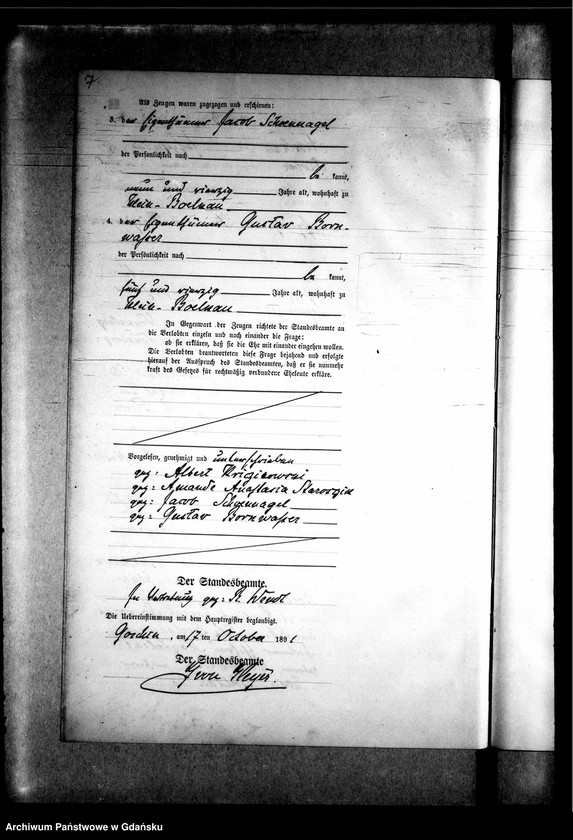 7
Als Zeugen waren zugezogen und erschienen:
3. der Eigenthümer Jacob Schoennagel
der Persönlichkeit nach
be kannt,
neun und vierzig Jahre alt, wohnhaft zu
Klein-Boelkau
4. der Eigenthümer Gustav Born-
wasser
der Persönlichkeit nach
be kannt,
fünf und vierzig Jahre alt, wohnhaft zu
Klein-Boelkau
In Gegenwart der Zeugen richtete der Standesbeamte an
die Verlobten einzeln und nach einander die Frage:
ob sie erklären, daß sie die Ehe mit einander eingehen wollen.
Die Verlobten beantworteten diese Frage bejahend und erfolgte
hierauf der Ausspruch des Standesbeamten, daß er sie nunmehr
kraft des Gesetzes für rechtmäßig verbundene Eheleute erkläre.
Vorgelesen, genehmigt und unterschrieben
gez: Albert
gez: Amande Anastasia
gez: Jacob Schoennagel
gez: Gustav Bornwasser
Der Standesbeamte.
In Vertretung gez: Wendt
Die Uebereinstimmung mit dem Hauptregister beglaubigt.
am 17 ten October 1891
Der Standesbeamte
Archiwum Państwowe w Gdańsku